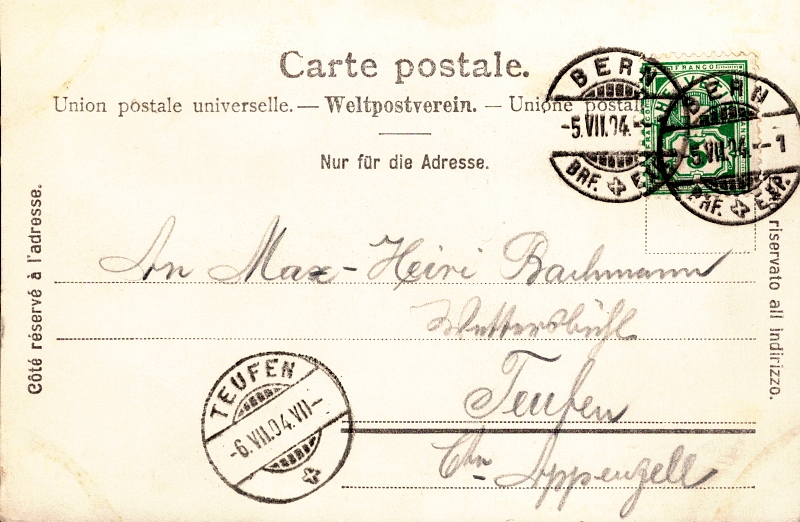 Carte postale.
Union postale universelle. — Weltpostverein. — Unione postal
Nur für die Adresse.
Côté réservé à l'adresse.
riservato all indirizzo.
FRANCO
BERN
-5.VII.04.-
BRF. EXP.
BERN
-5.VII.04.--1
BRF. EXP.
5
An Max-Heiri Bachmann
Wettersbühl
Teufen
Ctn Appenzell
TEUFEN
-6.VII.04.VII-